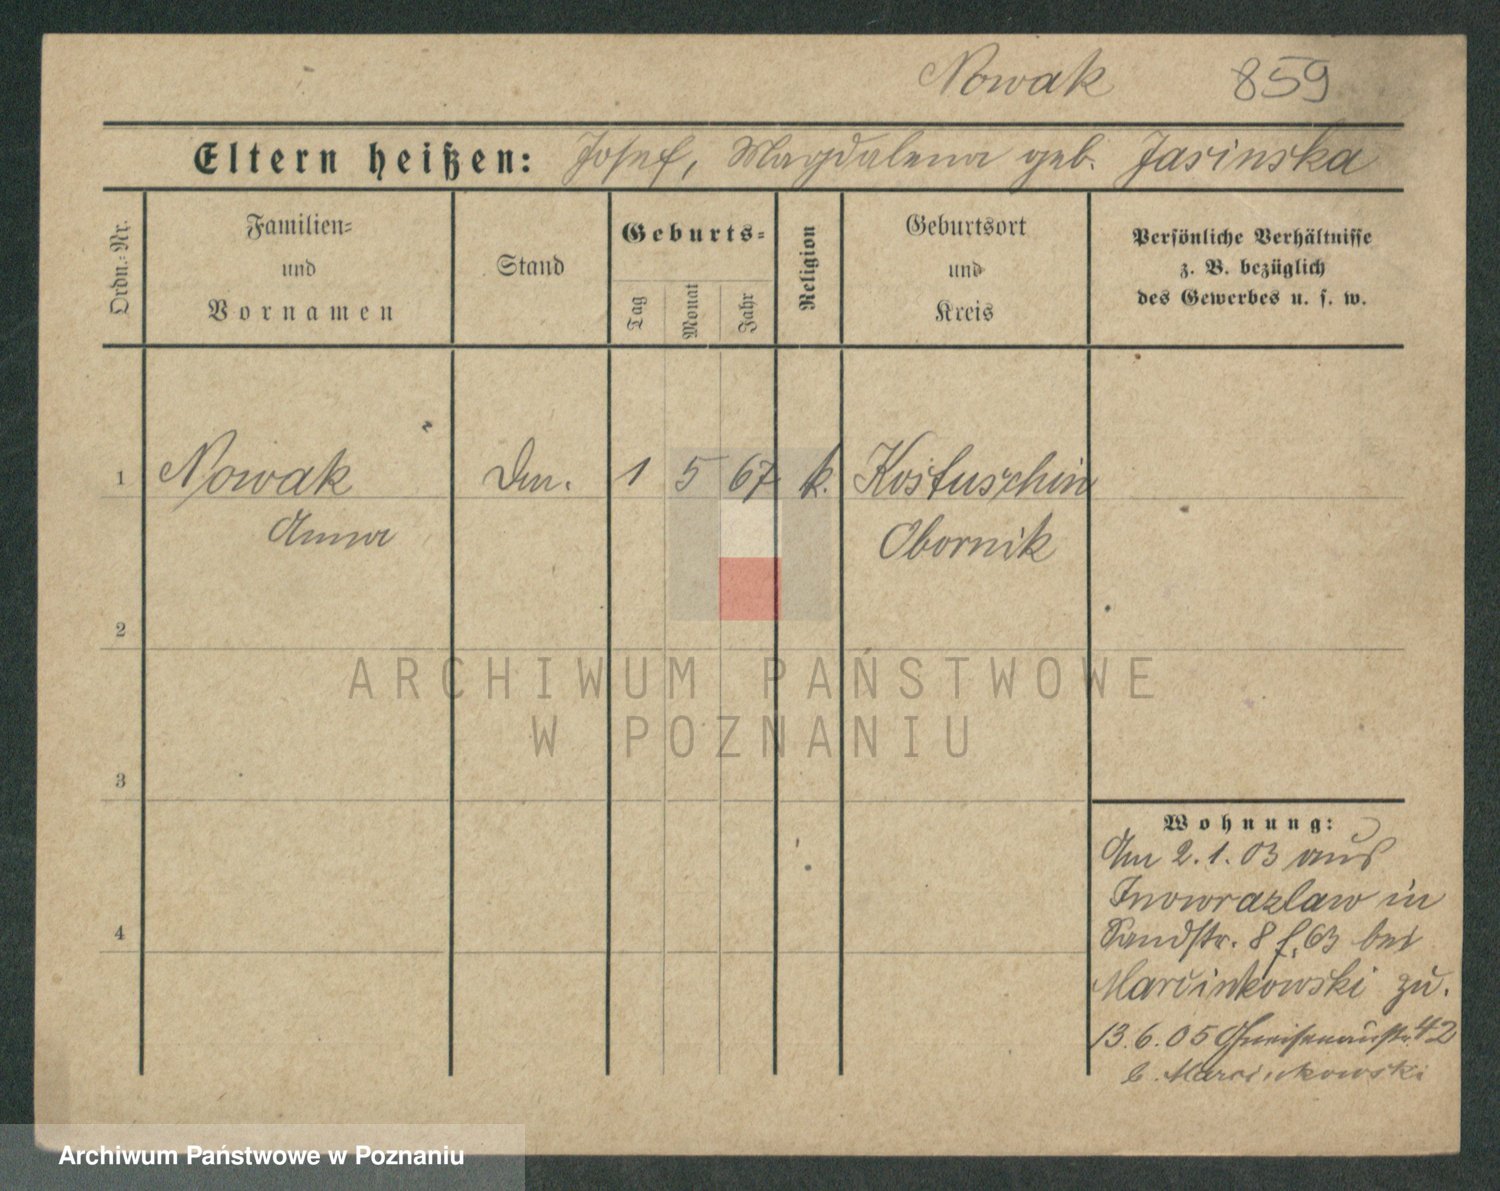 Nowak 859
Eltern heißen: Josef, Magdalena geb. Jasinska
Ordn.-Nr.
Familien-
und
Vornamen
Stand
Geburts-
Tag
Monat
Jahr
Religion
Geburtsort
und
Kreis
Persönliche Verhältnisse
z. B. bezüglich
des Gewerbes u. s. w.
1 Nowak 1 5 67 k. Kostuschin
Anna Obornik
2
3
4
Wohnung:
Am 2.1.03 aus
Inowrazlaw in
Sandstr. 8 f. 63 bei
Marcinkowski zu.
13.6.05 Gneisenaustr. 42
b. Marcinkowski
ARCHIWUM PAŃSTWOWE
W POZNANIU
Archiwum Państwowe w Poznaniu